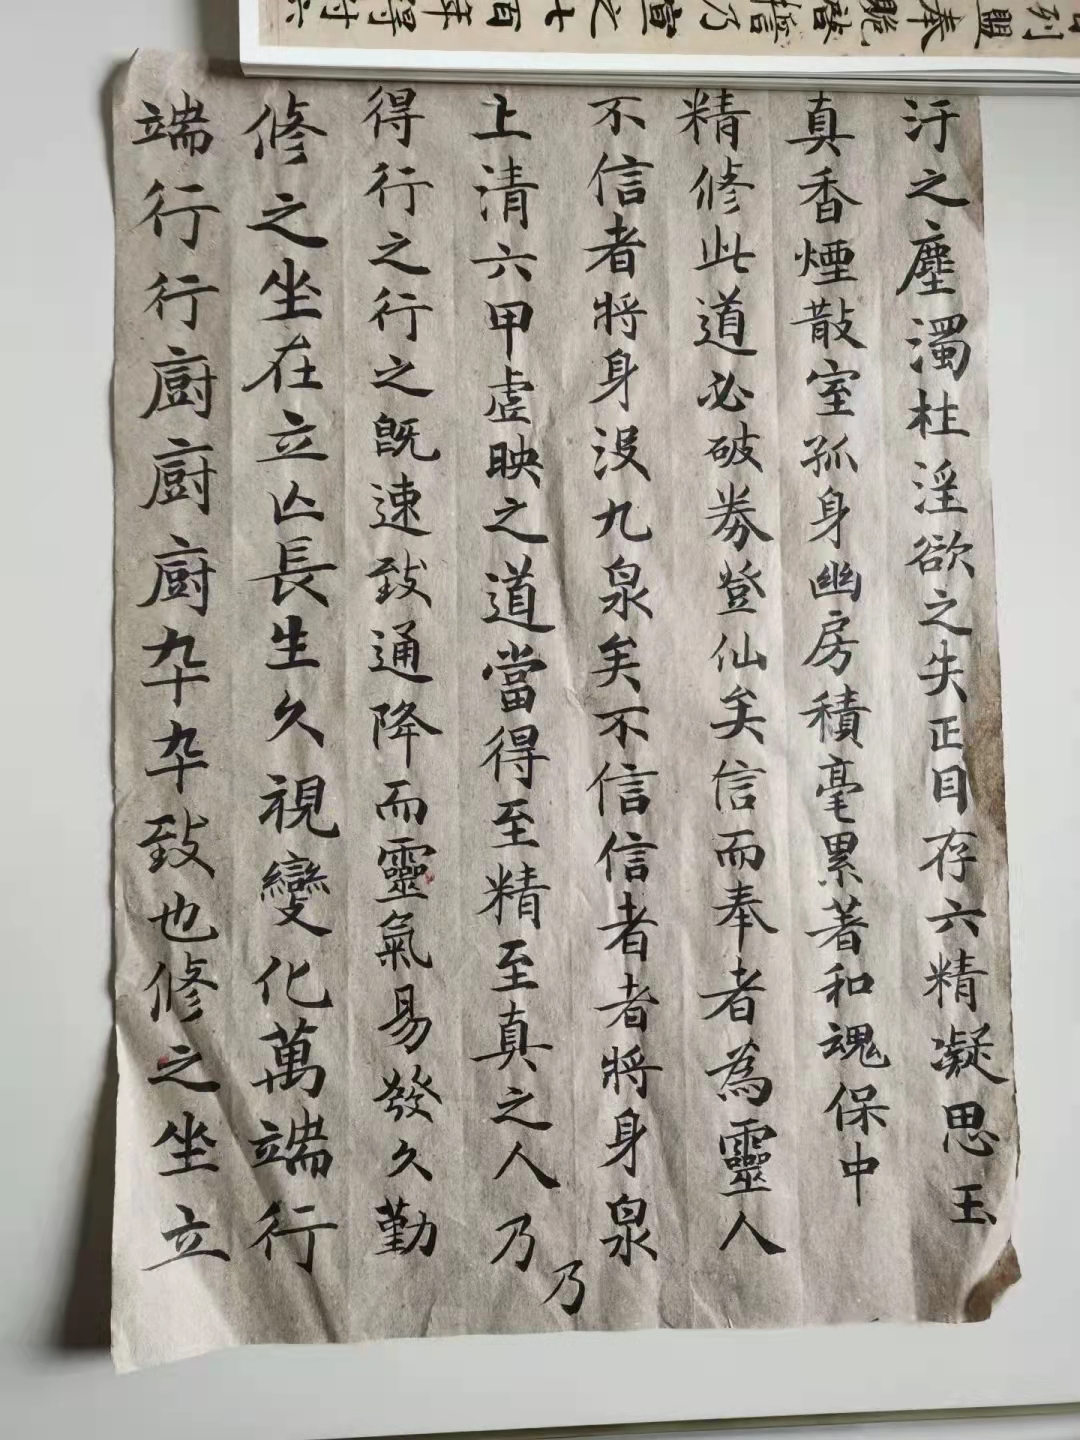 汙之塵濁杜淫欲之失正目存六精凝思玉
真香煙散室孤身幽房積毫累著和魂保中
精修此道必破券登仙矣信而奉者為靈人
不信者將身沒九泉矣不信信者者將身泉
乃
上清六甲虛映之道當得至精至真之人乃
得行之行之既速致通降而靈氣易發久勤
修之坐在立亡長生久視變化萬端行
端行行廚廚廚卒卒致也修之坐立